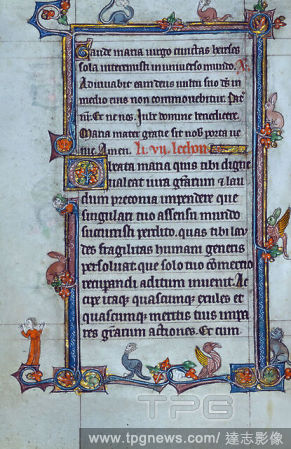 Gaude maria virgo cunctas hereses
sola interemisti in universo mundo.
Adiuvabit eam deus uultu suo ds in
medio eius non commouebitur. Pat
Et ne nos. Iube domne benedicere.
Maria mater gratie sit nob porta ue
nie. Amen.
O beata maria quis tibi digne
ualeat iura grarum & lau
dum preconia impendere que
singulari tuo assensu mundo
succuristi perdito. quas tibi lau
des fragilitas humani generis
persoluat. que solo tuo comercio
recuperandi aditum inuenit. Ac
cipe itaqe quascumque exiles et
quascumque meritis tuis impa
res grarum actiones. Et cum
TPG
www.tpgnews.com / 達志影像